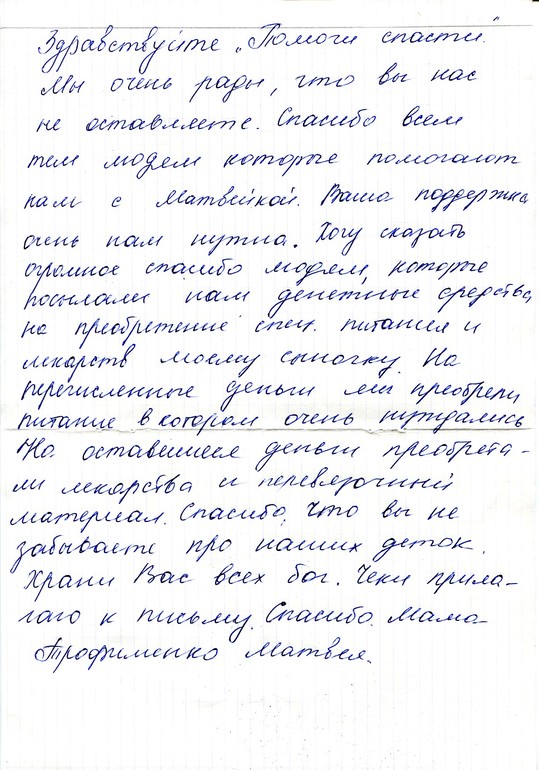 Здравствуйте „Помоги спасти".
Мы очень рады, что вы нас
не оставляете. Спасибо всем
тем людем которые помогают
нам с Матвейкой. Ваша поддержка
очень нам нужна. Хочу сказать
огромное спасибо людям, которые
посылали нам денежные средства
на преобретение спец. питания и
лекарств моему сыночку. На
перечисленные деньги мы преобрели
питание в котором очень нуждались
На оставшиеся деньги преобрета-
ли лекарства и перевязочный
материал. Спасибо, что вы не
забываете про наших деток.
Храни Вас всех бог. Чеки прила-
гаю к письму. Спасибо. Мама
Трофименко Матвея.